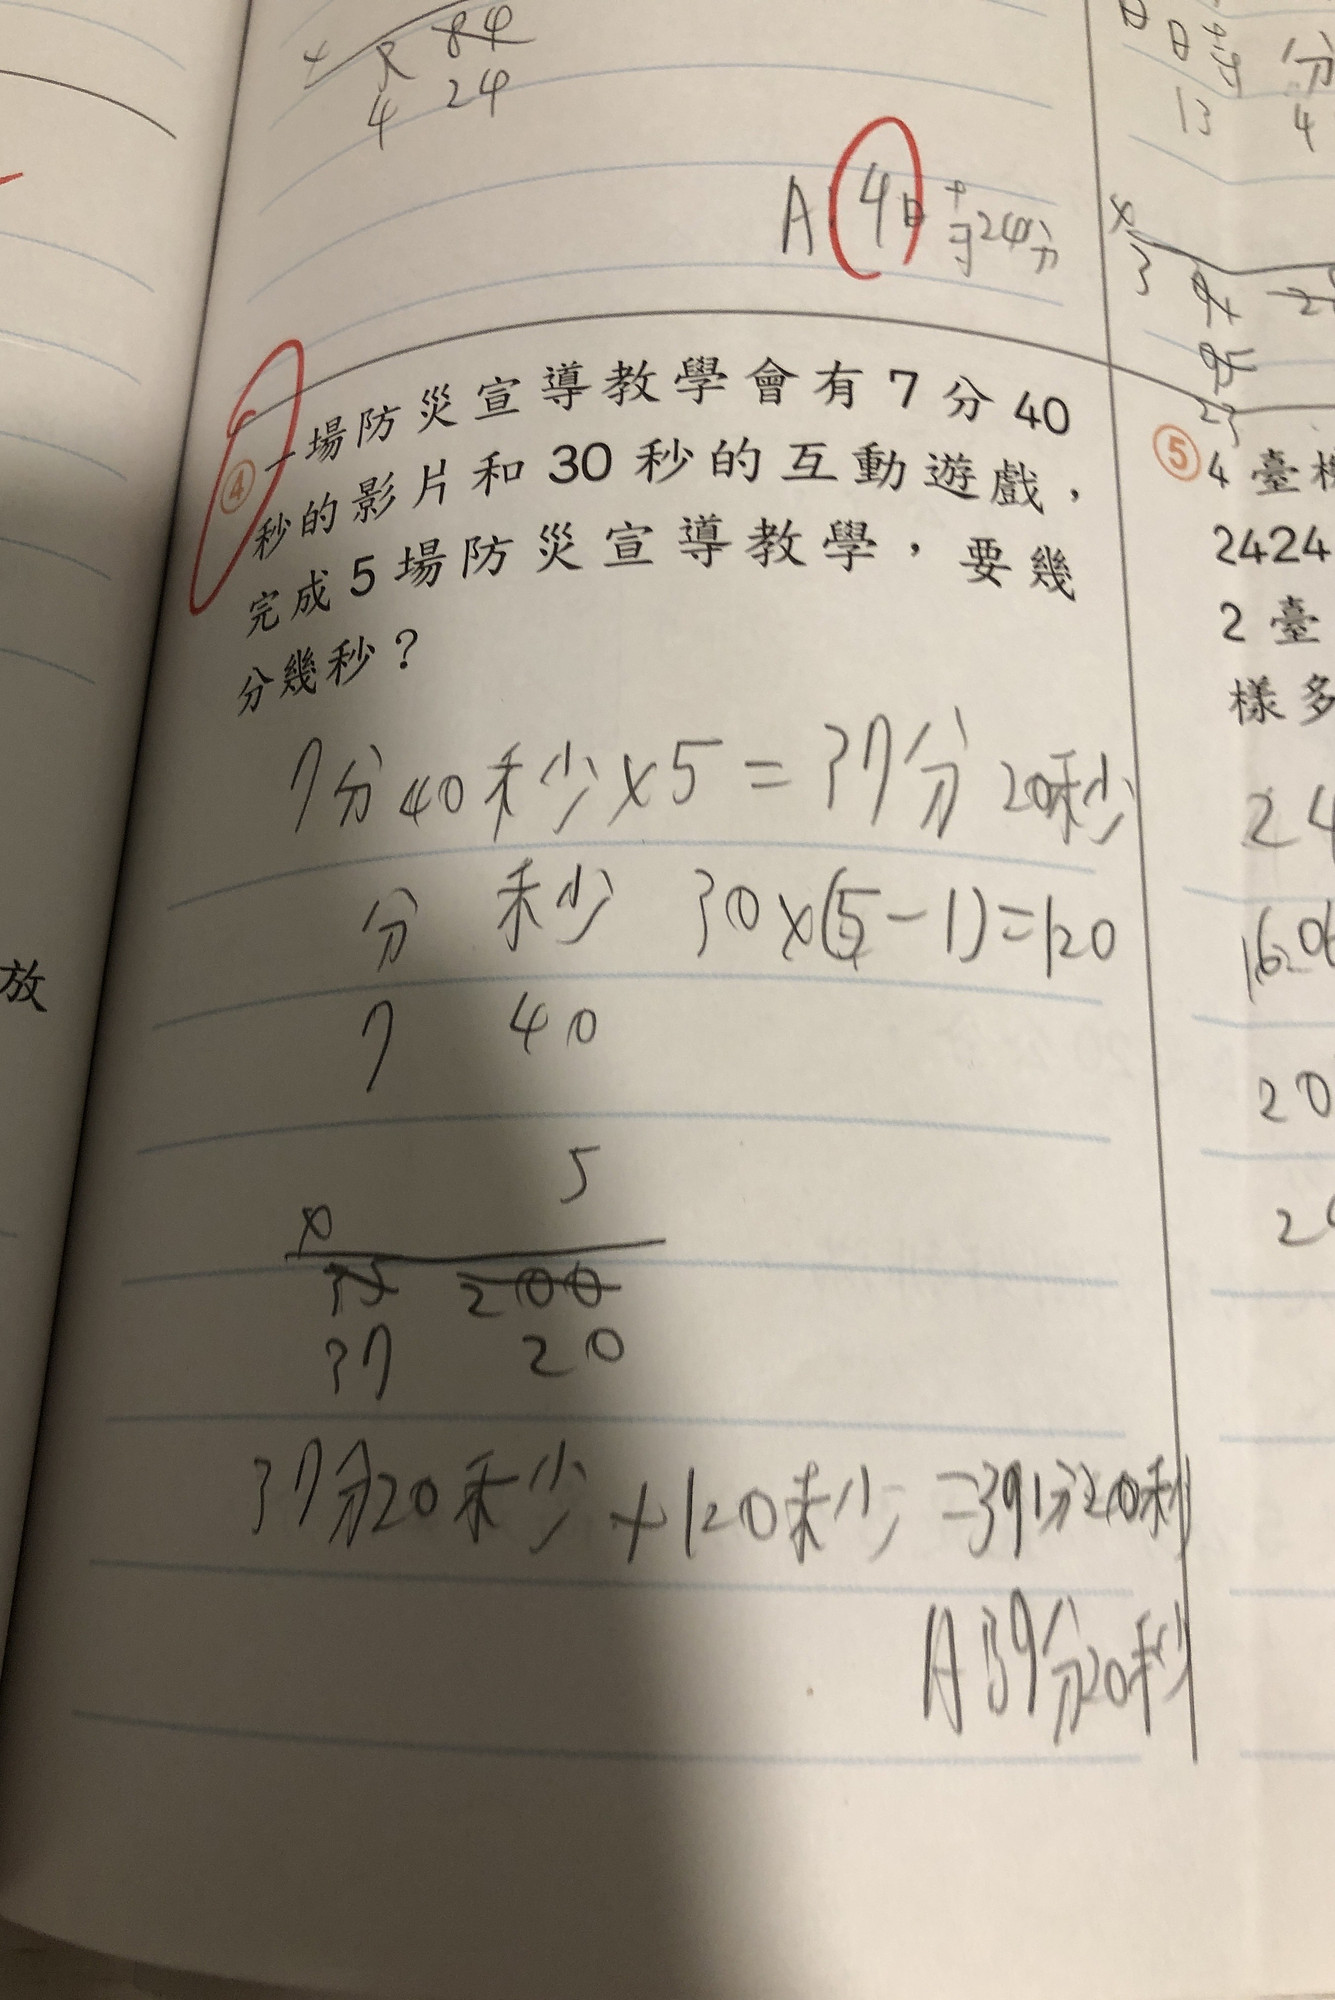 84
5
4 24
A 4日 時24分
日 時 分
13 4
x
3 94
95
23
④ 一場防災宣導教學會有7分40
秒的影片和30秒的互動遊戲，
完成5場防災宣導教學，要幾
分幾秒？
7分40秒x5=37分20秒
分 秒 30x(5-1)=120
7 40
5
x
35 200
37 20
37分20秒+120秒=39分20秒
A 39分20秒
⑤ 4臺
2424
2臺
樣多
24
20
放